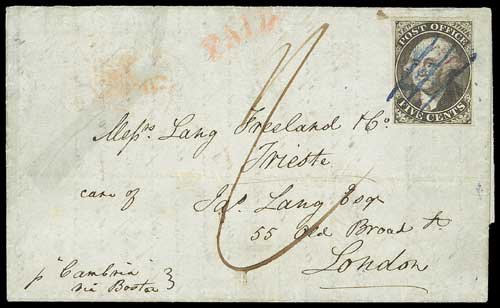 PAID
POST OFFICE
FIVE CENTS
Messrs Lang Freeland & Co
Trieste
care of Jas. Lang Esq
55 Old Broad St
London
p "Cambria"
via Boston